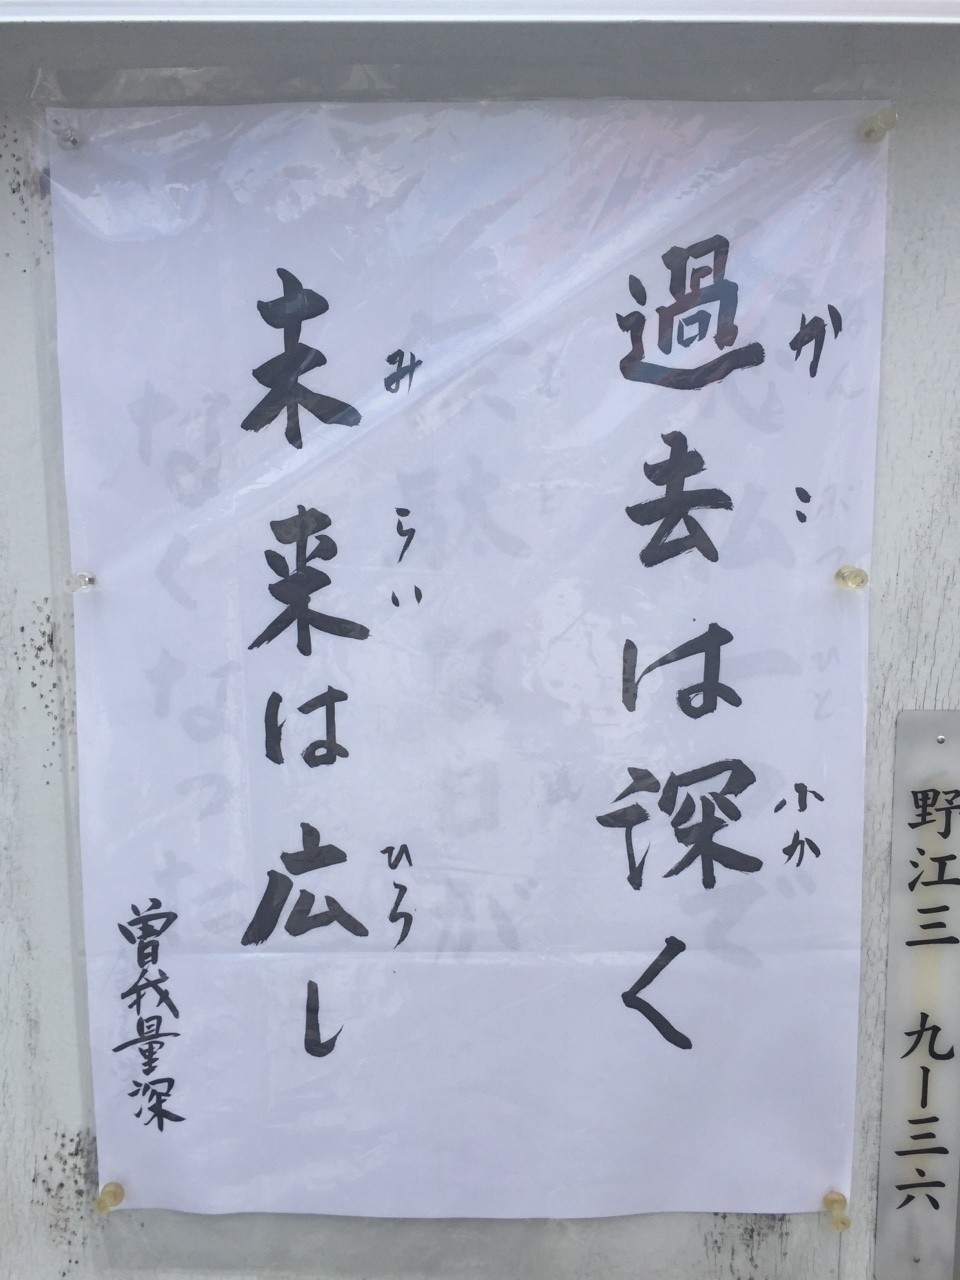 過去は深く
か こ ふか
未来は広し
み らい ひろ
曽我量深
野江三 九ー三六